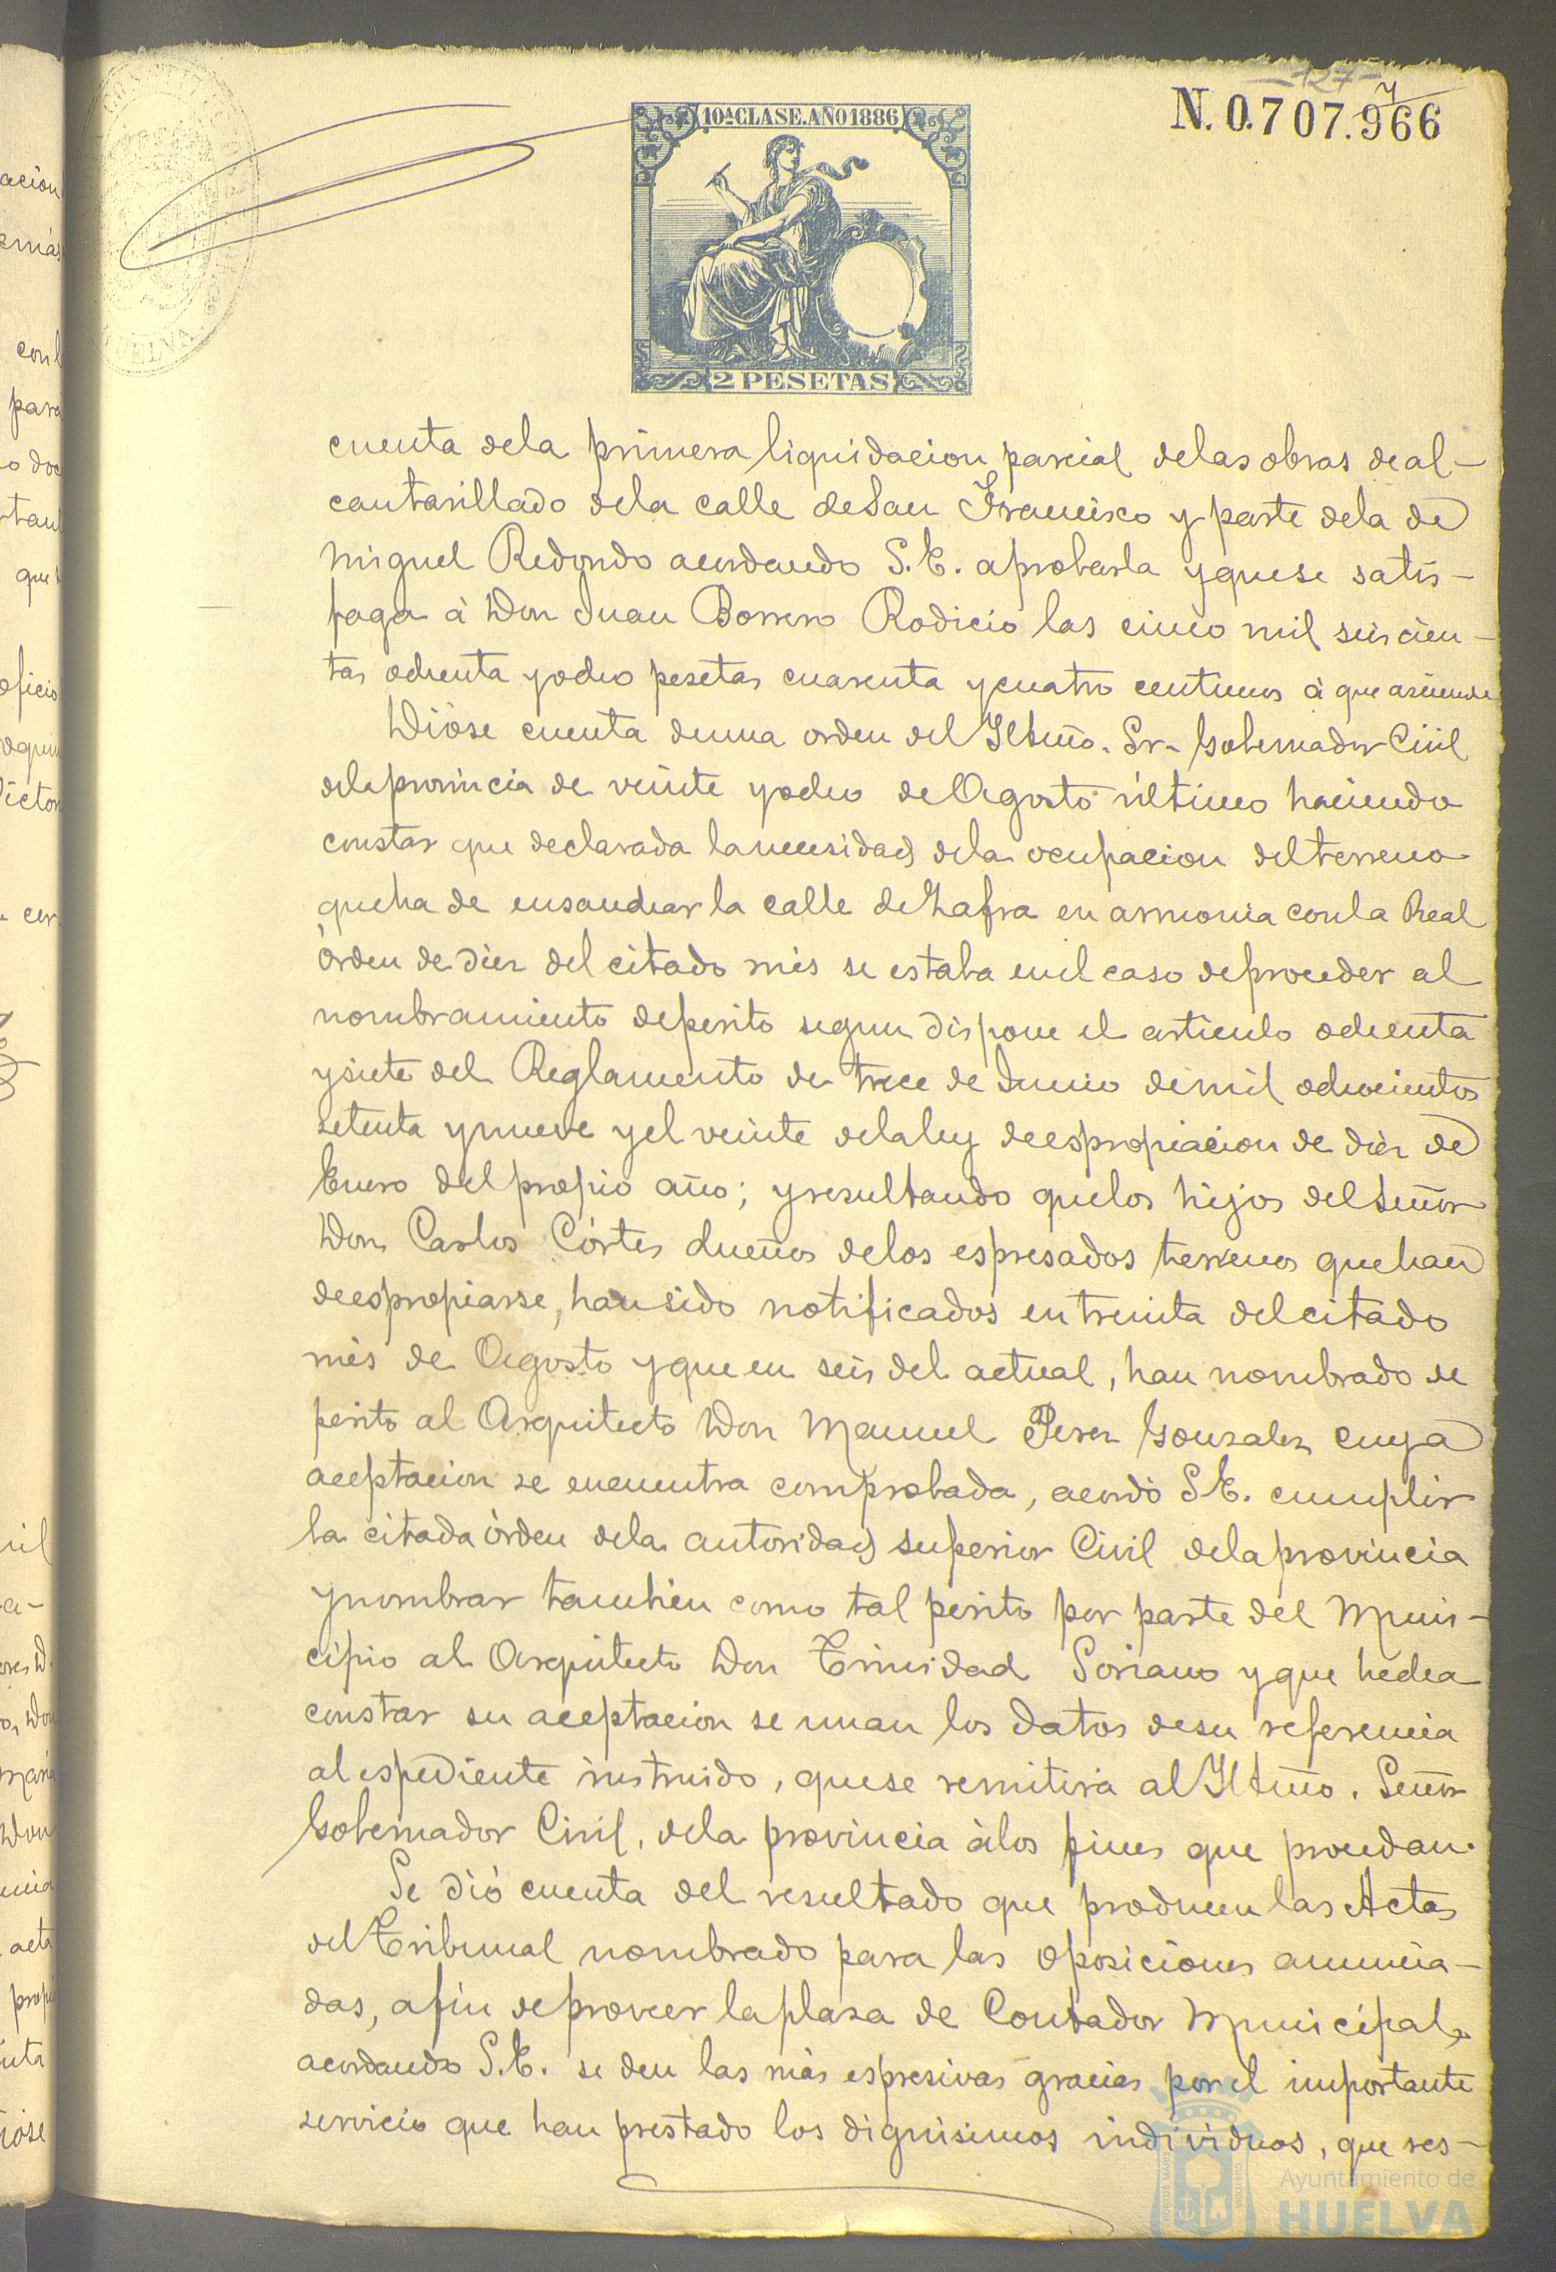 127
N. 0.707.966
10ª CLASE. AÑO 1886
2 PESETAS
cuenta dela primera liquidacion parcial delas obras de al-
cantarillado dela calle de San Francisco y parte dela de
Miguel Redondo acordando S.E. aprobarla y que se satis-
faga à Don Juan Borrero Rodicio las cinco mil seiscien-
tas ochenta y ocho pesetas cuarenta y cuatro centimos à que asciende
Dióse cuenta de una orden del Iltmo. Sr. Gobernador Civil
dela provincia de veinte y ocho de Agosto último haciendo
constar que declarada la necesidad dela ocupacion del terreno
que ha de ensanchar la calle de Zafra en armonia con la Real
órden de diez del citado mes se estaba en el caso de proceder al
nombramiento de perito segun dispone el articulo ochenta
y siete del Reglamento de trece de Junio de mil ochocientos
setenta y nueve y el veinte dela ley de espropiacion de diez de
Enero del propio año; y resultando que los hijos del Señor
Don Carlos Córtes dueños delos espresados terrenos que han
de espropiarse, han sido notificados en treinta del citado
mès de Agosto y que en seis del actual, han nombrado de
perito al Arquitecto Don Manuel Perez Gonzalez cuya
aceptacion se encuentra comprobada, acordó S.E. cumplir
la citada órden dela autoridad superior Civil dela provincia
y nombrar tambien como tal perito por parte del Muni-
cipio al Arquitecto Don Trinidad Soriano y que hecha
constar su aceptacion se unan los datos de su referencia
al espediente instruido, que se remitirá al Iltmo. Señor
Gobernador Civil, dela provincia à los fines que procedan.
Se dió cuenta del resultado que producen las Actas
del Tribunal nombrado para las oposiciones anuncia-
das, a fin de proveer la plaza de Contador Municipal,
acordando S.E. se den las màs espresivas gracias por el importante
servicio que han prestado los dignisimos individuos, que res-
Ayuntamiento de
HUELVA